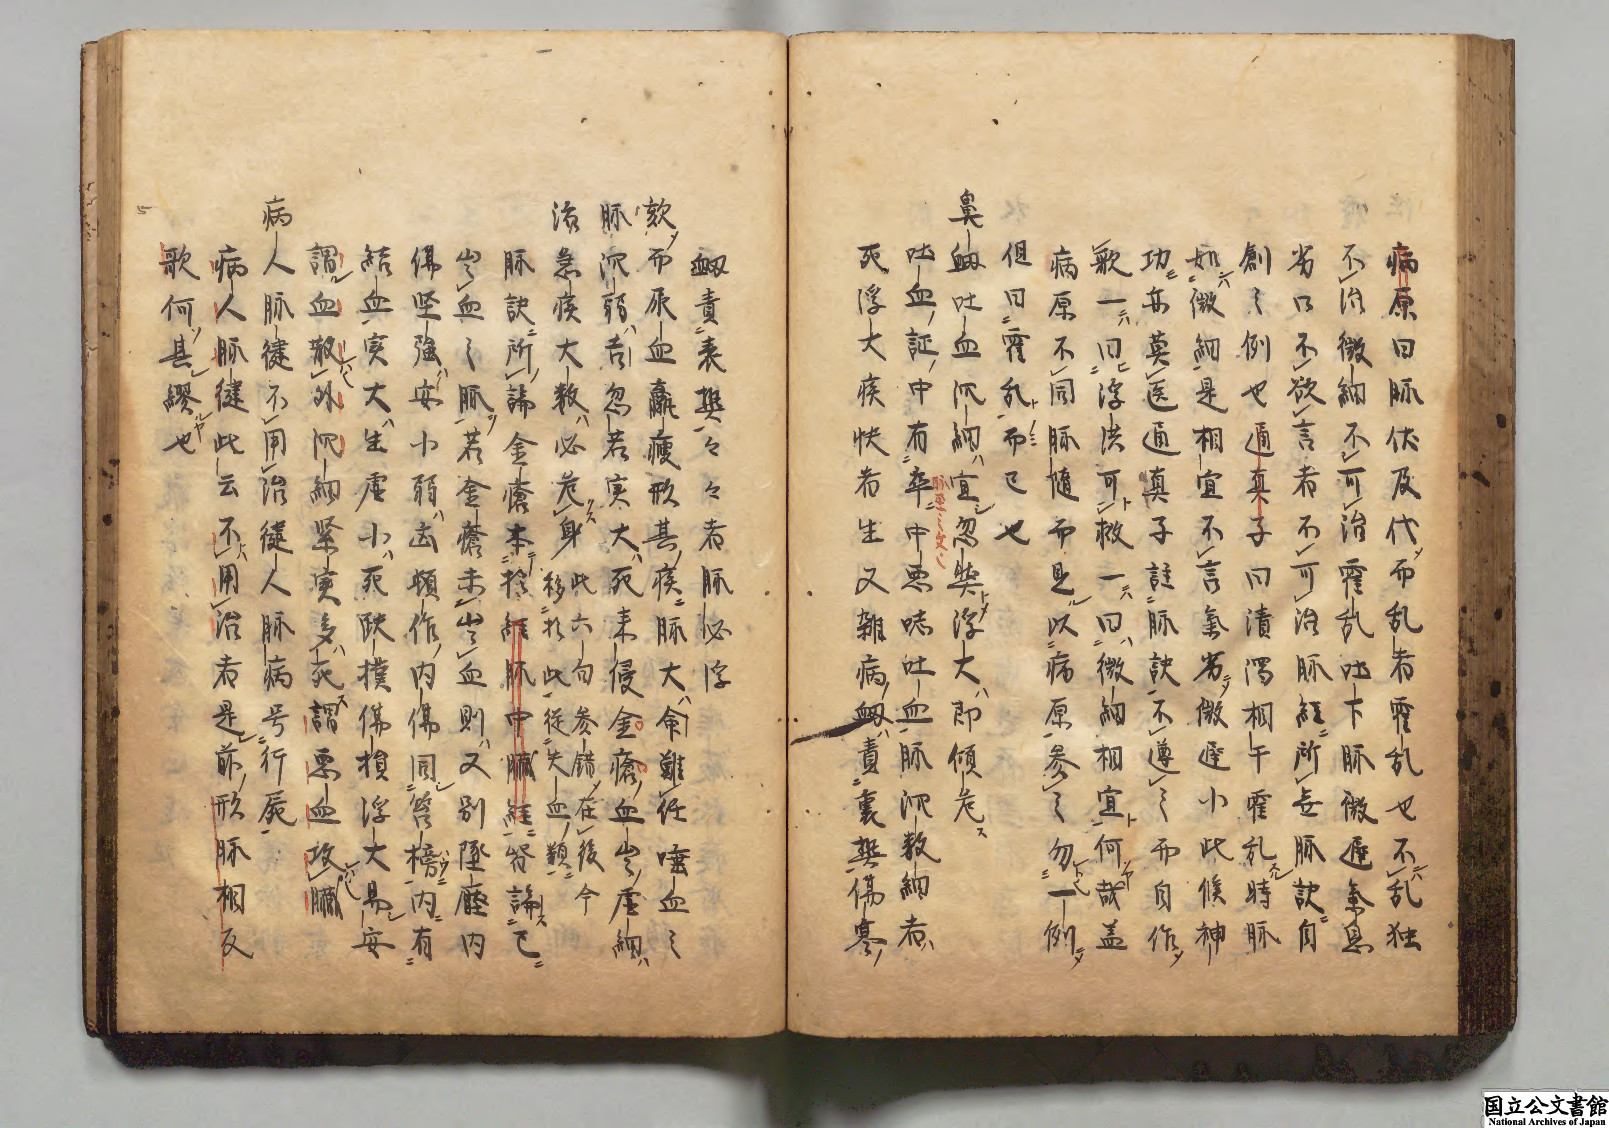 病原曰脈伏及代而乱者霍乱也不乱独
不治微細不可治霍乱吐下脈微遲氣息
劣口不欲言者不可治脈経所无脈訣自
創之例也通真子曰漬濁相干霍乱時脈
如微細是相宜不言氣劣微遲小此候神
功亦莫医通真子註脈訣不遵之而自作
歌一曰浮洪可救一曰微細相宜何哉盖
病原不同脈随而見以病原参之勿一例
但曰霍乱而已也
鼻衂吐血沉細宜忽然浮大即傾危
吐血証中有卒中悪𠱘吐血脈沉数細者
死浮大疾快者生又雜病衂責裏熱傷寒
衂責表熱々々者脈必浮
欬而尿血羸瘦形甚疾脈大命難任唾血之
脈沉弱吉忽若実大死来侵金瘡血出虚細
治急疾大数必危身此六句参錯在後今
移於此従失血類
脈訣所論金瘡本於経脈中臓経皆論已
出血之脈若金瘡未出血則又別墜壓内
傷堅強安小弱凶頓作内傷同笞榜内有
結血実大生虚小死跌撲傷損浮大易安
謂血散外沉細緊実多死謂悪血攻臓
病人脈健不用治健人脈病号行屍
病人脈健此云不用治者是前形脈相反
歌何其繆也
脈至之文
国立公文書館
National Archives of Japan